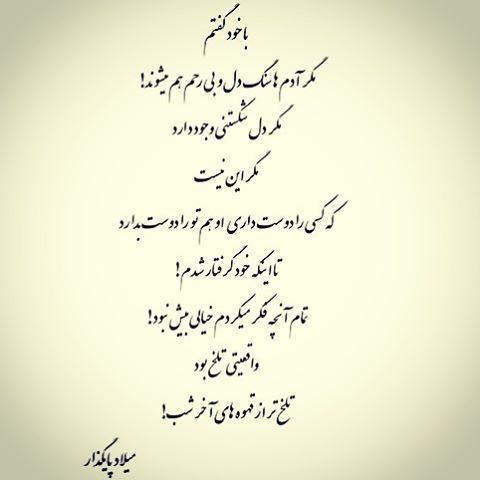 با خود گفتم
مگر آدم ها سنگ دل و بی رحم هم میشوند!
مگر دل شکستنی وجود دارد
مگر این نیست
که کسی را دوست داری او هم تو را دوست بدارد
تا اینکه خود گرفتار شدم!
تمام آنچه فکر میکردم خیالی بیش نبود!
واقعیتی تلخ بود
تلخ تر از قهوه های آخر شب!
میلاد پایگذار